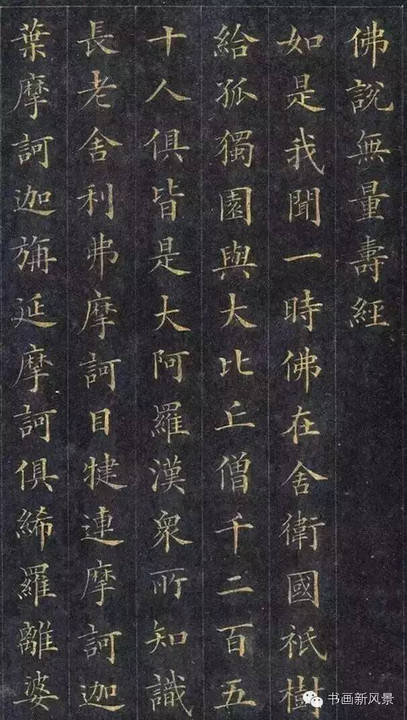 佛說無量壽經
如是我聞一時佛在舍衛國祇樹
給孤獨園與大比丘僧千二百五
十人俱皆是大阿羅漢衆所知識
長老舍利弗摩訶目犍連摩訶迦
葉摩訶迦旃延摩訶俱絺羅離婆
书画新风景